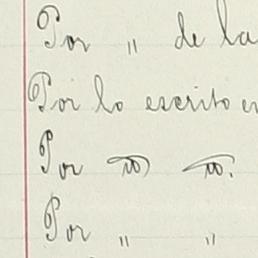 Por " de la
Por lo escrito en
Por
Por " "